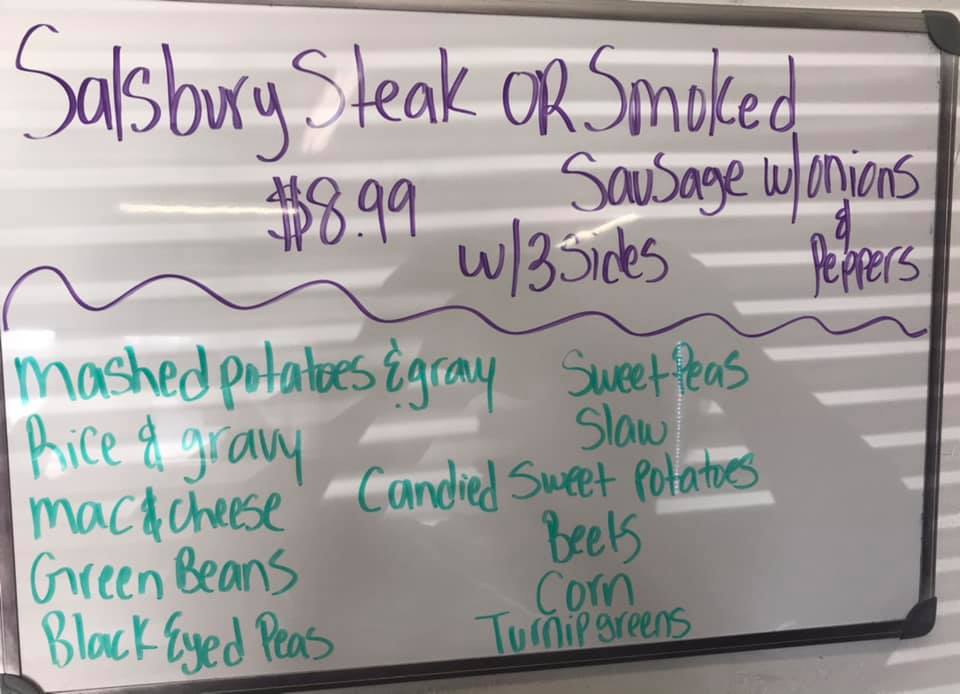 Salsbury Steak OR Smoked
Sausage w/onions
&
Peppers
$8.99
w/3 Sides
mashed potatoes & gravy
Rice & gravy
mac & cheese
Green Beans
Black Eyed Peas
Sweet Peas
Slaw
Candied Sweet potatoes
Beets
Corn
Turnip greens